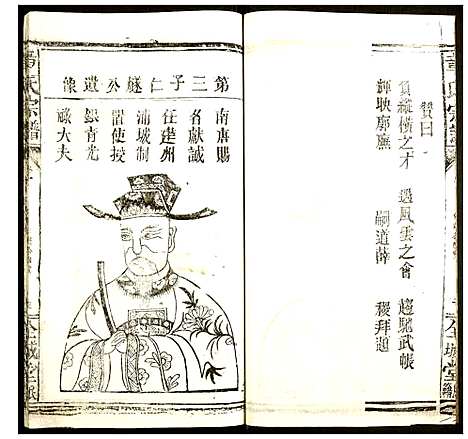 贊曰
負縱橫之才　遇風雲之會　趨馳武帳
輝映廊廡　嗣道薛　稷拜題
第三子仁燧公遺像
南唐賜
名獻誠
任建州
浦城制
置使授
銀青光
祿大夫
宗譜
全城堂